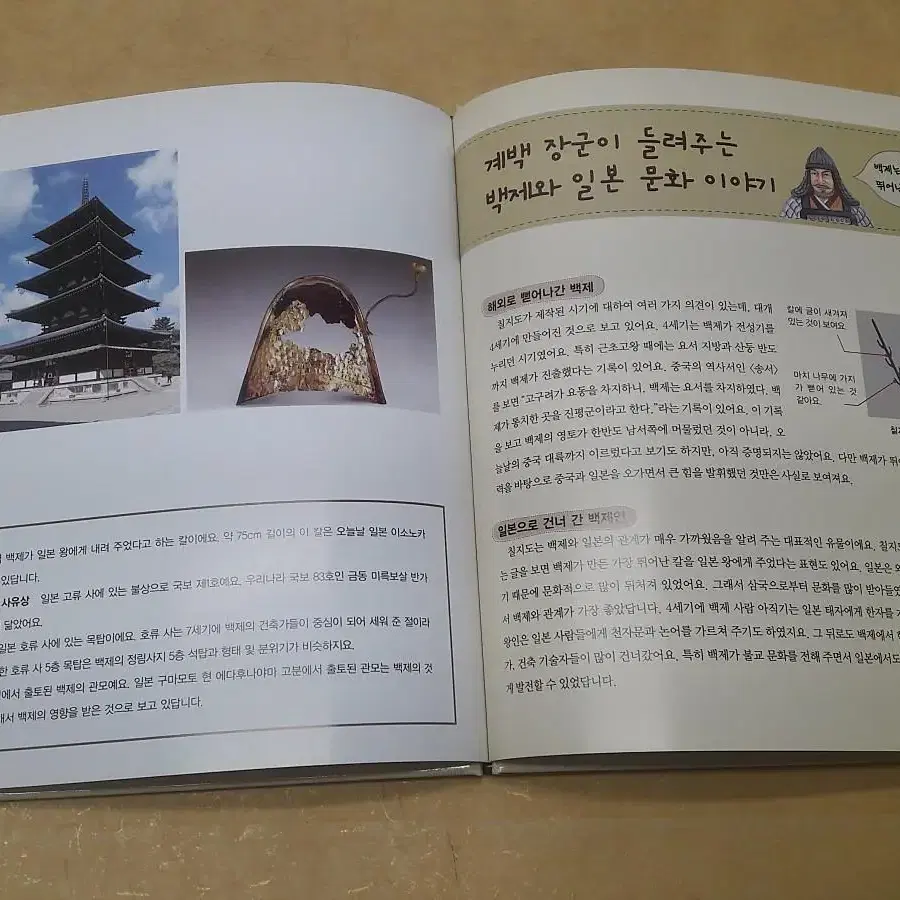 백제가 일본 왕에게 내려 주었다고 하는 칼이에요. 약 75cm 길이의 이 칼은 오늘날 일본 이소노카
있답니다.
사유상 일본 고류 사에 있는 불상으로 국보 제1호예요. 우리나라 국보 83호인 금동 미륵보살 반가
닮았어요.
일본 호류 사에 있는 목탑이에요. 호류 사는 7세기에 백제의 건축가들이 중심이 되어 세워 준 절이라
한 호류 사 5층 목탑은 백제의 정림사지 5층 석탑과 형태 및 분위기가 비슷하지요.
에서 출토된 백제의 관모예요. 일본 구마모토 현 에다후나야마 고분에서 출토된 관모는 백제의 것
해서 백제의 영향을 받은 것으로 보고 있답니다.
계백 장군이 들려주는
백제와 일본 문화 이야기
백제는
뛰어
해외로 뻗어나간 백제
칠지도가 제작된 시기에 대하여 여러 가지 의견이 있는데, 대개
4세기에 만들어진 것으로 보고 있어요. 4세기는 백제가 전성기를
누리던 시기였어요. 특히 근초고왕 때에는 요서 지방과 산둥 반도
까지 백제가 진출했다는 기록이 있어요. 중국의 역사서인 〈송서〉
를 보면 "고구려가 요동을 차지하니, 백제는 요서를 차지하였다. 백
제가 통치한 곳을 진평군이라고 한다."라는 기록이 있어요. 이 기록
을 보고 백제의 영토가 한반도 남서쪽에 머물렀던 것이 아니라, 오
늘날의 중국 대륙까지 이르렀다고 보기도 하지만, 아직 증명되지는 않았어요. 다만 백제가 뛰
력을 바탕으로 중국과 일본을 오가면서 큰 힘을 발휘했던 것만은 사실로 보여져요.
칼에 글이 새겨져
있는 것이 보여요.
마치 나무에 가지
가 뻗어 있는 것
같아요.
칠지
일본으로 건너 간 백제인
칠지도는 백제와 일본의 관계가 매우 가까웠음을 알려 주는 대표적인 유물이에요. 칠지도
는 글을 보면 백제가 만든 가장 뛰어난 칼을 일본 왕에게 주었다는 표현도 있어요. 일본은
기 때문에 문화적으로 많이 뒤처져 있었어요. 그래서 삼국으로부터 문화를 많이 받아들였
서 백제와 관계가 가장 좋았답니다. 4세기에 백제 사람 아직기는 일본 태자에게 한자를 가
왕인은 일본 사람들에게 천자문과 논어를 가르쳐 주기도 하였지요. 그 뒤로도 백제에서
가, 건축 기술자들이 많이 건너갔어요. 특히 백제가 불교 문화를 전해 주면서 일본에서도
게 발전할 수 있었답니다.